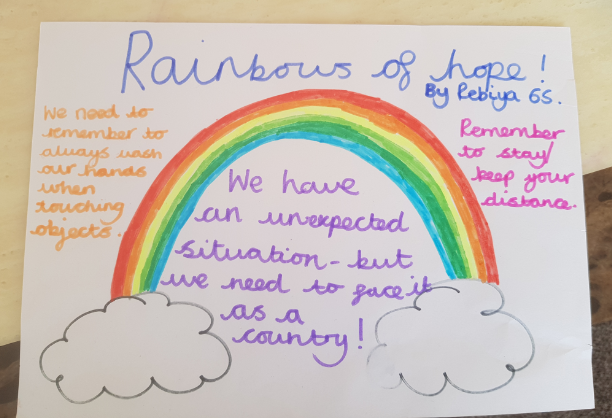 Rainbows of hope!
By Rebiya 6S.
We need to
remember to
always wash
our hands
when
touching
objects.
Remember
to stay/
keep your
distance.
We have
an unexpected
situation - but
we need to face it
as a
country!